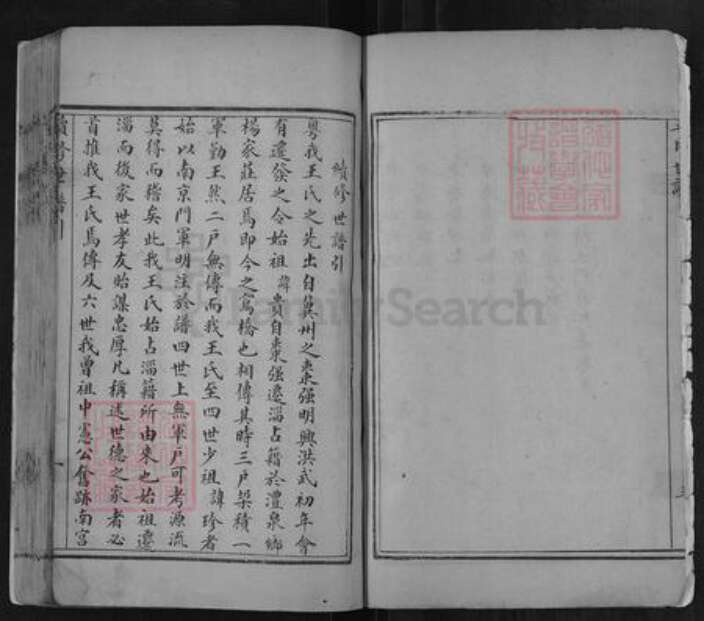 續修世譜引
粵我王氏之先出自冀州之棗强明興洪武初年會
有遷發之令始祖諱貴自棗强遷淄占籍於澧泉鄉
楊家莊居焉即今之窎橋也相傳其時三戶梁績一
軍勤王然二戶無傳而我王氏至四世少祖諱珍者
始以南京門軍明注於譜四世上無軍戶可考源流
莫得而稽矣此我王氏始占淄籍所由来也始祖遷
淄而後家世孝友貽謀忠厚凡稱述世德之家者必
首推我王氏焉傳及六世我曾祖中憲公奮跡南宮
續修世譜引
一
FamilySearch